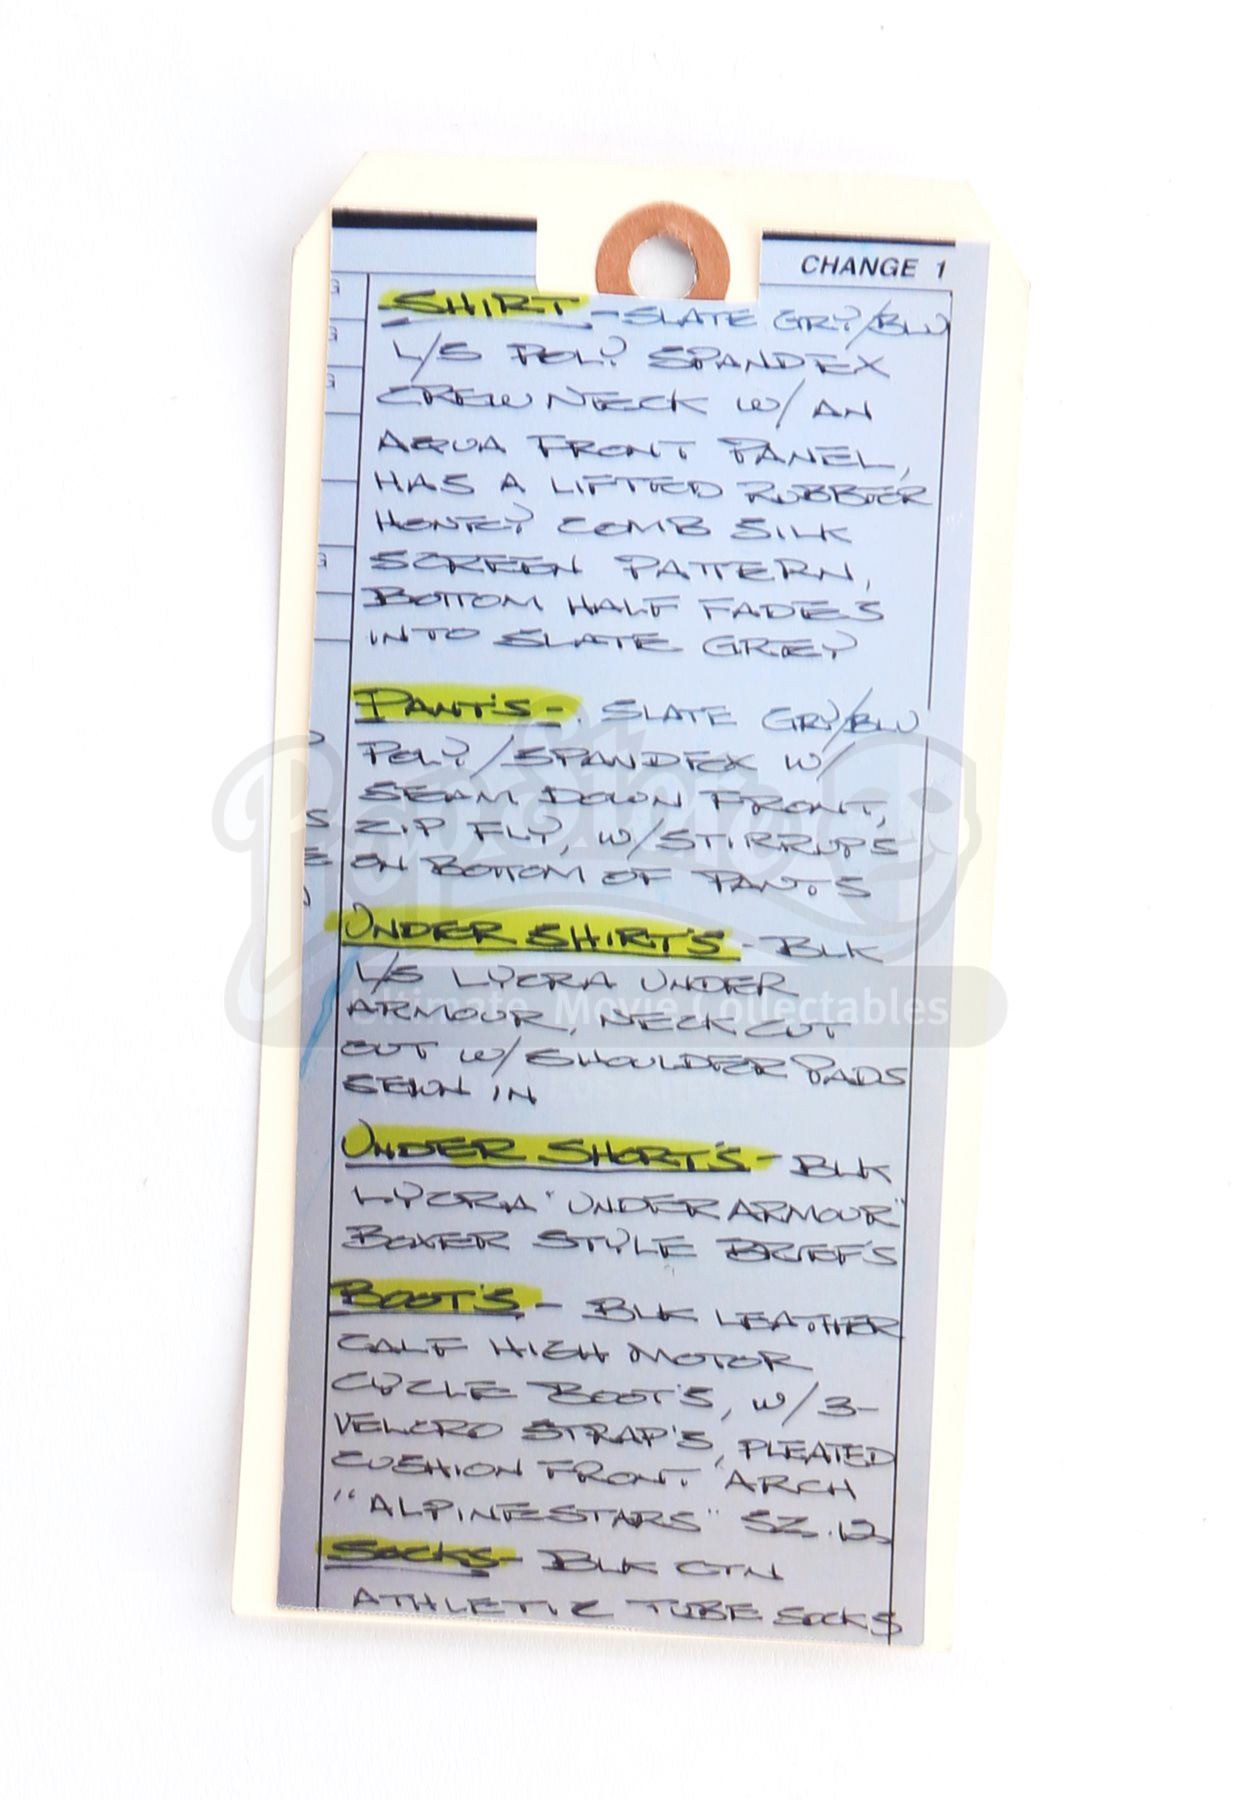 CHANGE 1
SHIRT - SLATE GRY/BLU
L/S POLY SPANDEX
CREW NECK W/ AN
AQUA FRONT PANEL,
HAS A LIFTED RUBBER
HONEY COMB SILK
SCREEN PATTERN,
BOTTOM HALF FADES
INTO SLATE GREY
PANT'S - SLATE GRY/BLU
POLY/SPANDEX W/
SEAM DOWN FRONT,
ZIP FLY, W/STIRRUPS
ON BOTTOM OF PANT'S
UNDER SHIRT'S - BLK
L/S LYCRA UNDER
ARMOUR, NECK CUT
OUT W/SHOULDER PADS
SEWN IN
UNDER SHORT'S - BLK
LYCRA "UNDER ARMOUR"
BOXER STYLE BRIEF'S
BOOT'S - BLK LEATHER
CALF HIGH MOTOR
CYCLE BOOT'S, W/3-
VELCRO STRAP'S, PLEATED
CUSHION FRONT. ARCH
"ALPINESTARS" SZ.12
SOCKS - BLK CTN
ATHLETIC TUBE SOCKS
PropStore
Ultimate Movie Collectables